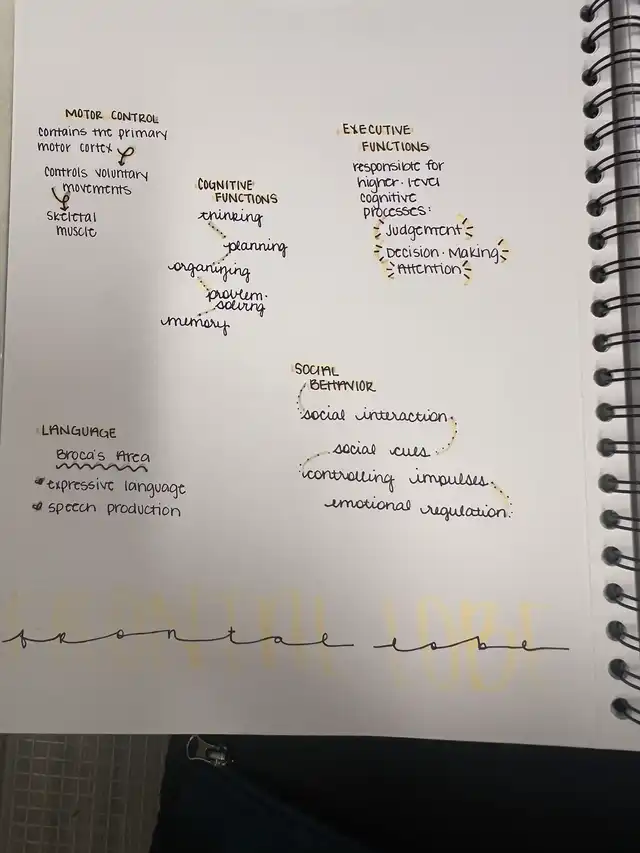 MOTOR CONTROL
contains the primary
motor cortex
controls voluntary
movements
skeletal
muscle
COGNITIVE
FUNCTIONS
thinking
planning
organizing
problem-
solving
memory
EXECUTIVE
FUNCTIONS
responsible for
higher-level
cognitive
processes:
Judgement
Decision-Making
Attention
SOCIAL
BEHAVIOR
social interaction
social cues
controlling impulses
emotional regulation
LANGUAGE
Broca's Area
expressive language
speech production
FRONTAL LOBE
frontal lobe